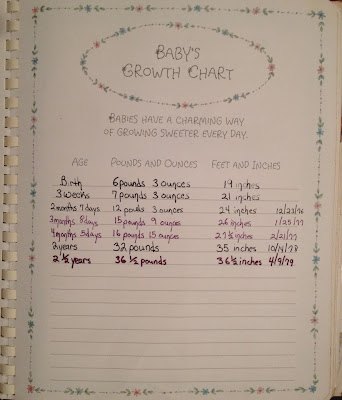 BABY'S
GROWTH CHART
BABIES HAVE A CHARMING WAY
OF GROWING SWEETER EVERY DAY.
AGE POUNDS AND OUNCES FEET AND INCHES
Birth 6 pounds 3 ounces 19 inches
3 weeks 7 pounds 3 ounces 21 inches
2 months 7 days 12 pounds 3 ounces 24 inches 12/23/76
3 months 8 days 15 pounds 9 ounces 26 inches 1/25/77
4 months 5 days 16 pounds 15 ounces 27 ½ inches 2/21/77
2 years 32 pounds 35 inches 10/4/78
2 ½ years 36 ½ pounds 36 ½ inches 4/9/79